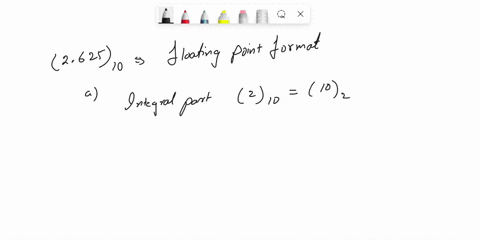 (2.625)₁₀ ⇒ floating point format
a) Integral part (2)₁₀ = (10)₂